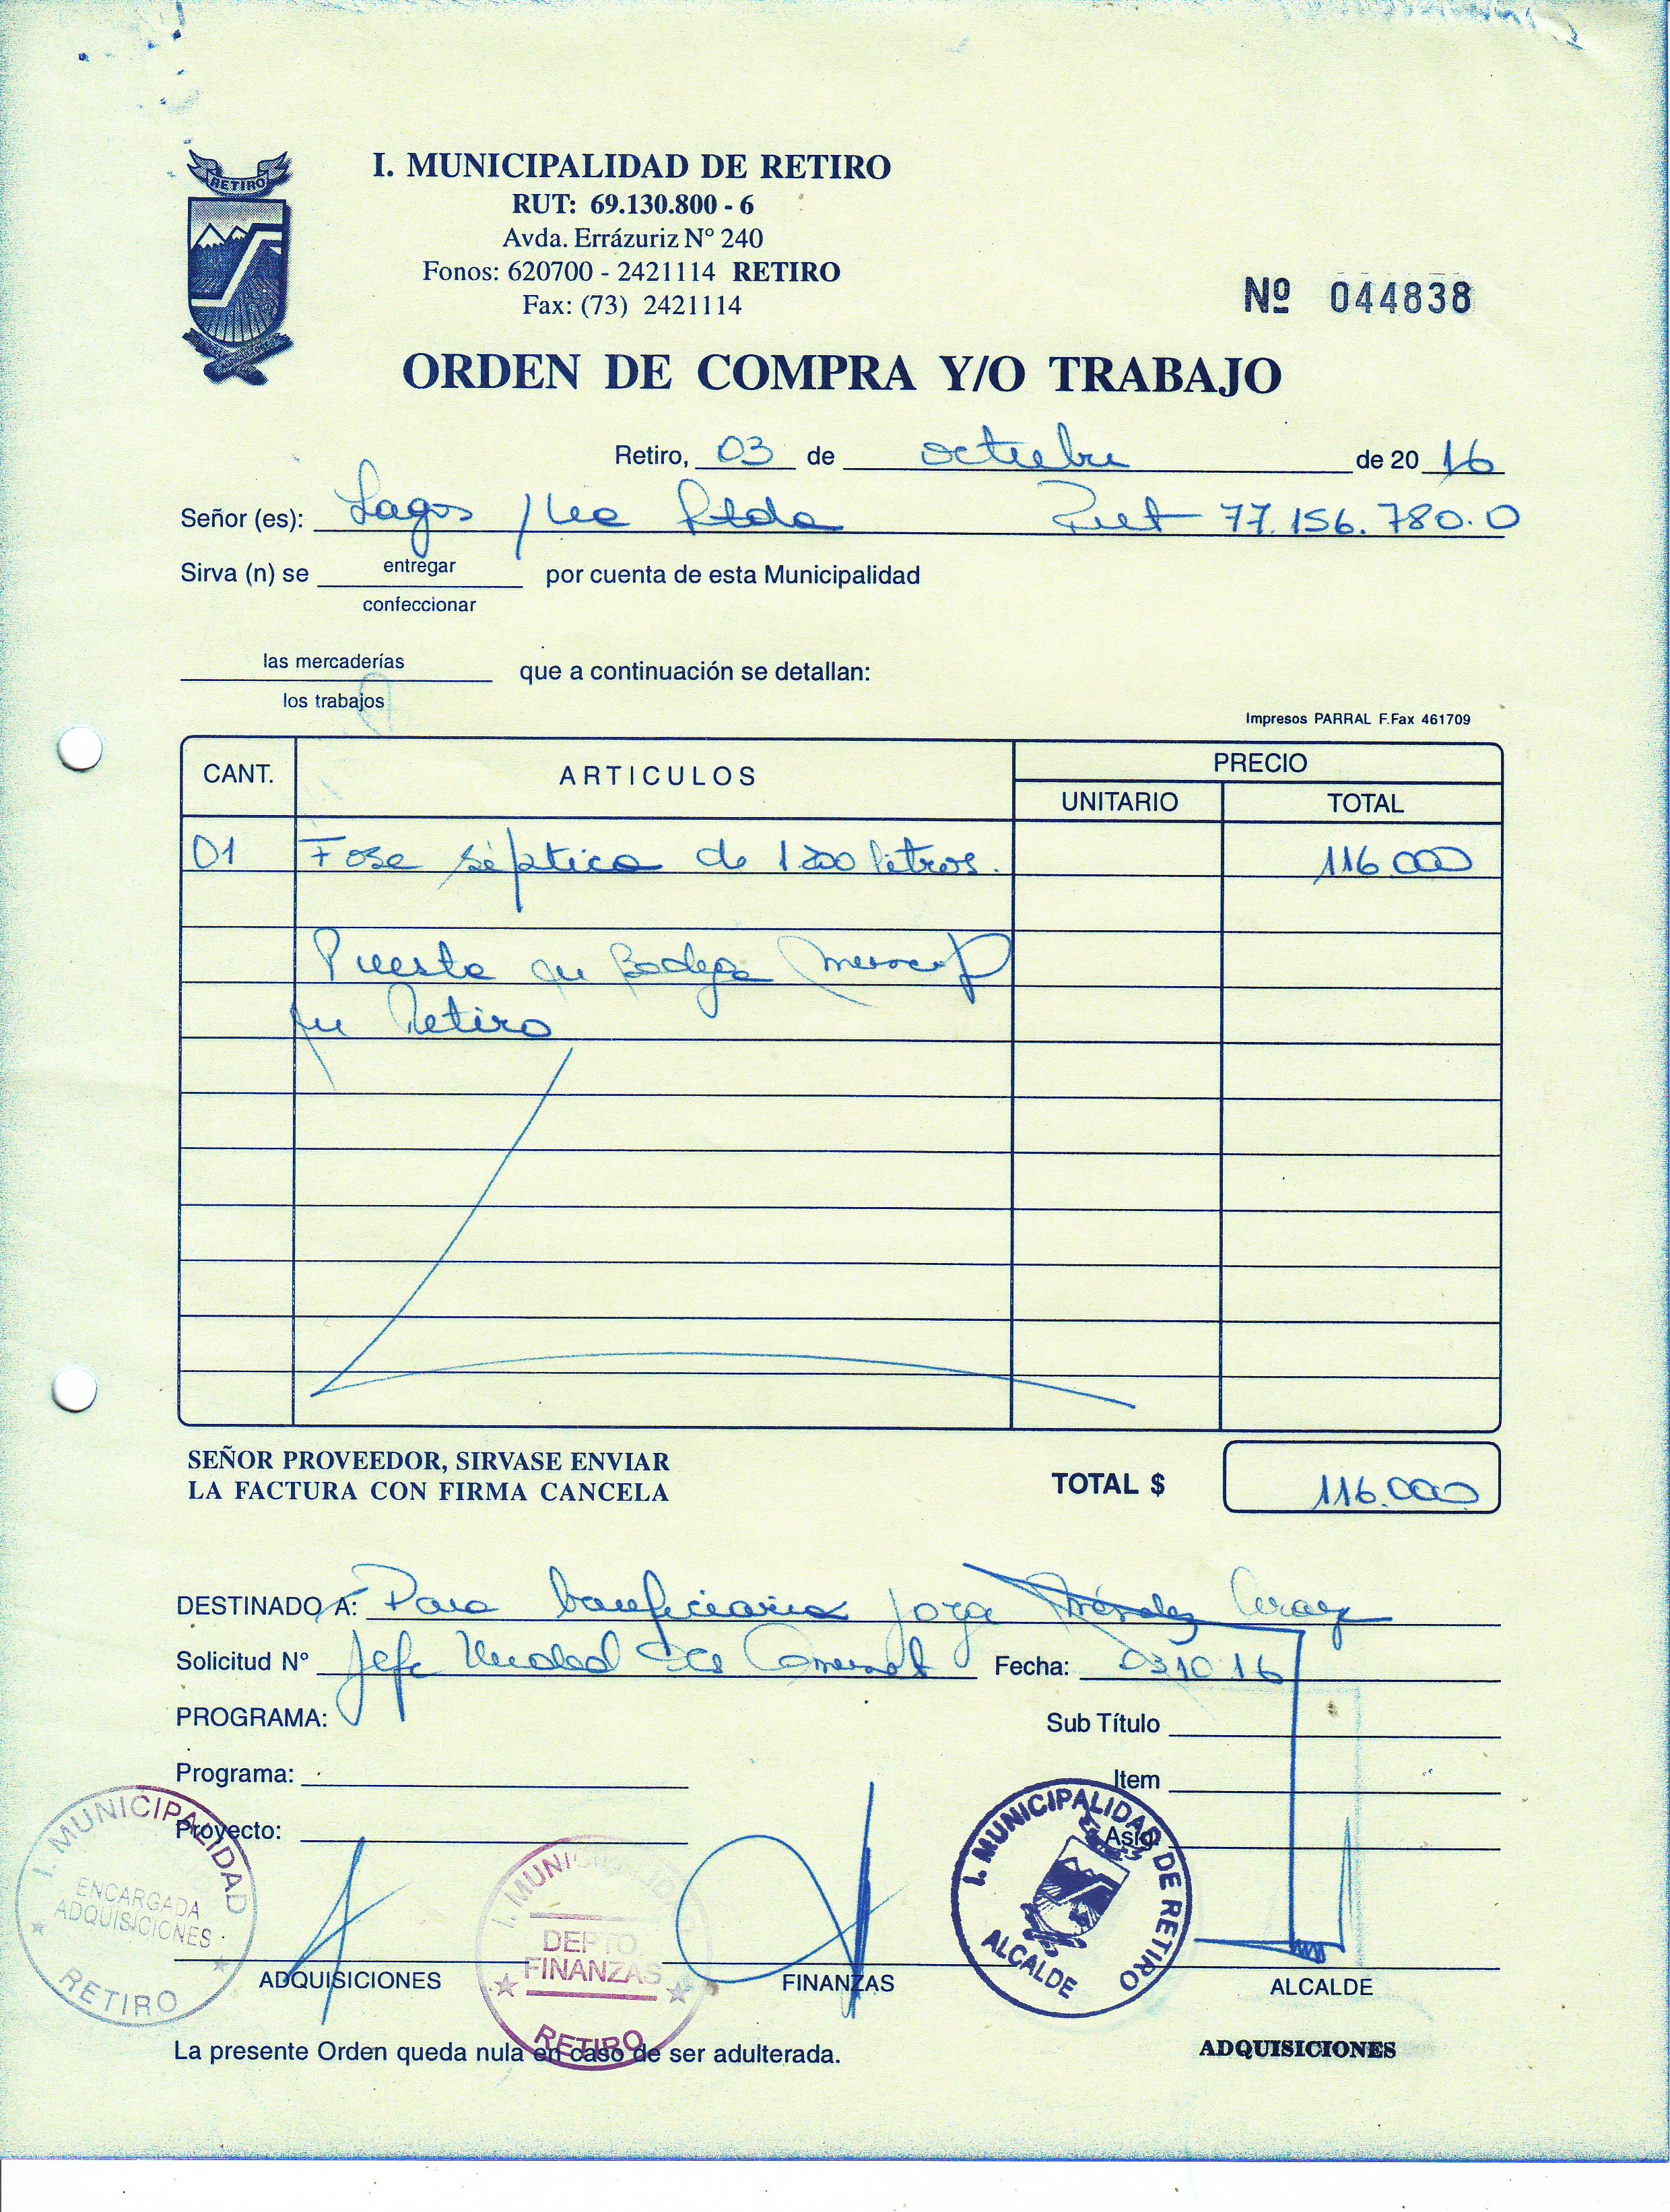 RETIRO
I. MUNICIPALIDAD DE RETIRO
RUT: 69.130.800 - 6
Avda. Errázuriz Nº 240
Fonos: 620700 - 2421114 RETIRO
Fax: (73) 2421114
Nº 044838
ORDEN DE COMPRA Y/O TRABAJO
Retiro, 03 de octubre de 20 16
Señor (es): Lagos Ltda Rut 77.156.780.0
Sirva (n) se entregar por cuenta de esta Municipalidad
confeccionar
las mercaderías que a continuación se detallan:
los trabajos
Impresos PARRAL F.Fax 461709
CANT. ARTICULOS PRECIO
UNITARIO TOTAL
01 Fosa séptica de 1200 litros. 116.000
Puesta en Bodega
en Retiro
SEÑOR PROVEEDOR, SIRVASE ENVIAR
LA FACTURA CON FIRMA CANCELA
TOTAL $ 116.000
DESTINADO A: Para Jorge
Solicitud Nº Jefe Unidad Fecha: 03.10.16
PROGRAMA: Sub Título
Programa: Item
Proyecto: Asig.
I. MUNICIPALIDAD ENCARGADA ADQUISICIONES RETIRO
I. MUNICIPALIDAD DEPTO. FINANZAS RETIRO
I. MUNICIPALIDAD DE RETIRO ALCALDE
ADQUISICIONES FINANZAS ALCALDE
La presente Orden queda nula en caso de ser adulterada.
ADQUISICIONES